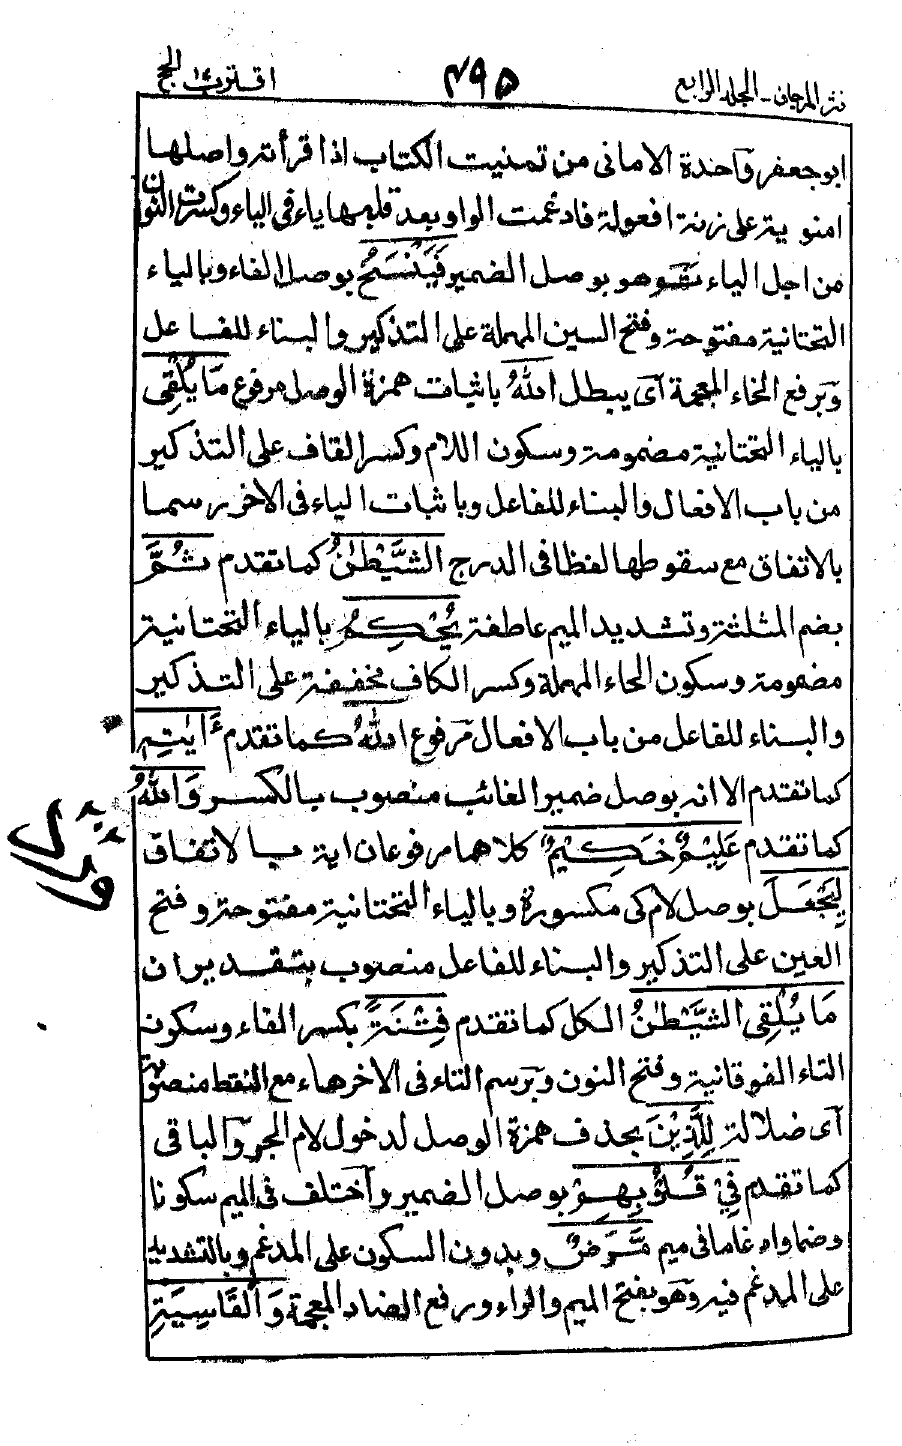 نثر المرجان - الجلد الرابع ٤٩٥ اقترب ١٧ الحج
ابو جعفر وَاحدة الامانى من تمنيت الكتاب اذا قرأته واصلها
امنوية على زنة افعولة فادغمت الواو بعد قلبها ياء فى الياء وكسرت النون
من اجل الياء نقـ وهو بوصل الضمير فَيَنْسَخُ بوصل الفاء وبالياء
التحتانية مفتوحة وفتح السين المهملة على التذكير والبناء للفاعل
وبرفع الخاء المعجمة اى يبطل اللهُ باثبات همزة الوصل مرفوع مَا يُلْقِى
بالياء التحتانية مضمومة وسكون اللام وكسر القاف على التذكير
من باب الافعال والبناء للفاعل وباثبات الياء فى الاخر رسما
بالاتفاق مع سقوطها لفظا فى الدرج الشَّيْطٰنُ كما تقدم ثُمَّ
بضم المثلثة وتشديد الميم عاطفة يُحْكِمُ بالياء التحتانية
مضمومة وسكون الحاء المهملة وكسر الكاف مخففة على التذكير
والبناء للفاعل من باب الافعال مرفوع اللهُ كما تقدم ءَايٰتِهٖ
كما تقدم الا انه بوصل ضمير الغائب منصوب بالكسر وَاللهُ
كما تقدم عَلِيْمٌ حَكِيْمٌ كلاهما مرفوعان اية بالاتفاق
لِيَجْعَلَ بوصل لام كى مكسورة وبالياء التحتانية مفتوحة وفتح
العين على التذكير والبناء للفاعل منصوب بتقدير ان
مَا يُلْقِى الشَّيْطٰنُ الكل كما تقدم فِتْنَةً بكسر الفاء وسكون
التاء الفوقانية وفتح النون وبرسم التاء فى الاخر هاء مع النقط منصوبة
اى ضلالة لِلَّذِيْنَ بحذف همزة الوصل لدخول لام الجر والباقى
كما تقدم فِىْ قُلُوْبِهِمْ بوصل الضمير واختلف فى الميم سكونا
وضما وادغاما فى ميم مَّرَضٌ وبدون السكون على المدغم وبالتشديد
على المدغم فيه وهو بفتح الميم والراء ورفع الضاد المعجمة وَالْقَاسِيَةِ